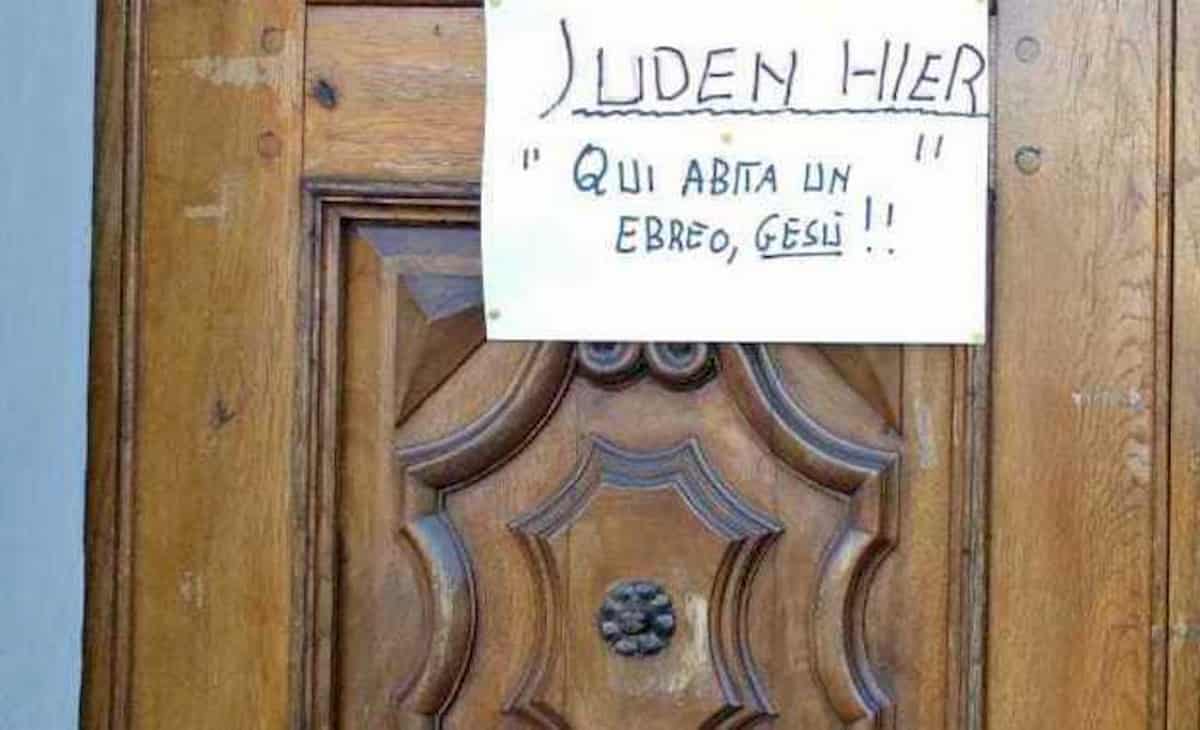 JUDEN HIER
" QUI ABITA UN "
EBREO, GESÙ!!